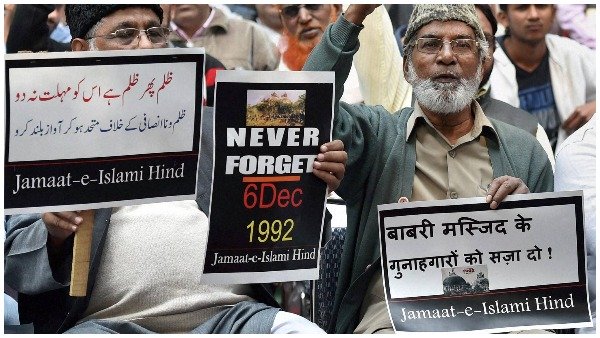 ظلم پھر ظلم ہے اس کو مہلت نہ دو
ظلم و نا انصافی کے خلاف متحد ہو کر آواز بلند کرو
Jamaat-e-Islami Hind
NEVER
FORGET
6Dec
1992
Jamaat-e-Islami Hind
बाबरी मस्जिद के
गुनाहगारों को सज़ा दो !
Jamaat-e-Islami Hind